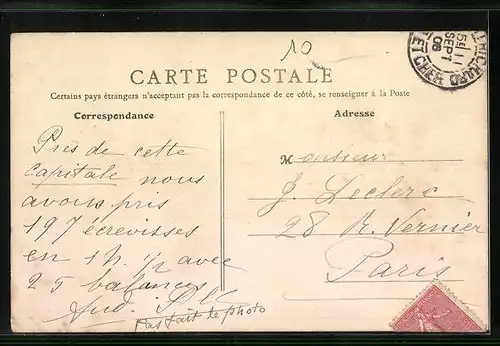 10
CARTE POSTALE
Certains pays étrangers n'acceptant pas la correspondance de ce côté, se renseigner à la Poste
Correspondance
Près de cette
capitale nous
avons pris
197 écrevisses
en 1h. 1/2 avec
25 balances
Pas fait le photo
Adresse
Monsieur
J. Leclerc
28 R. Vernier
Paris
5E 11
SEPT
06
ET CHER